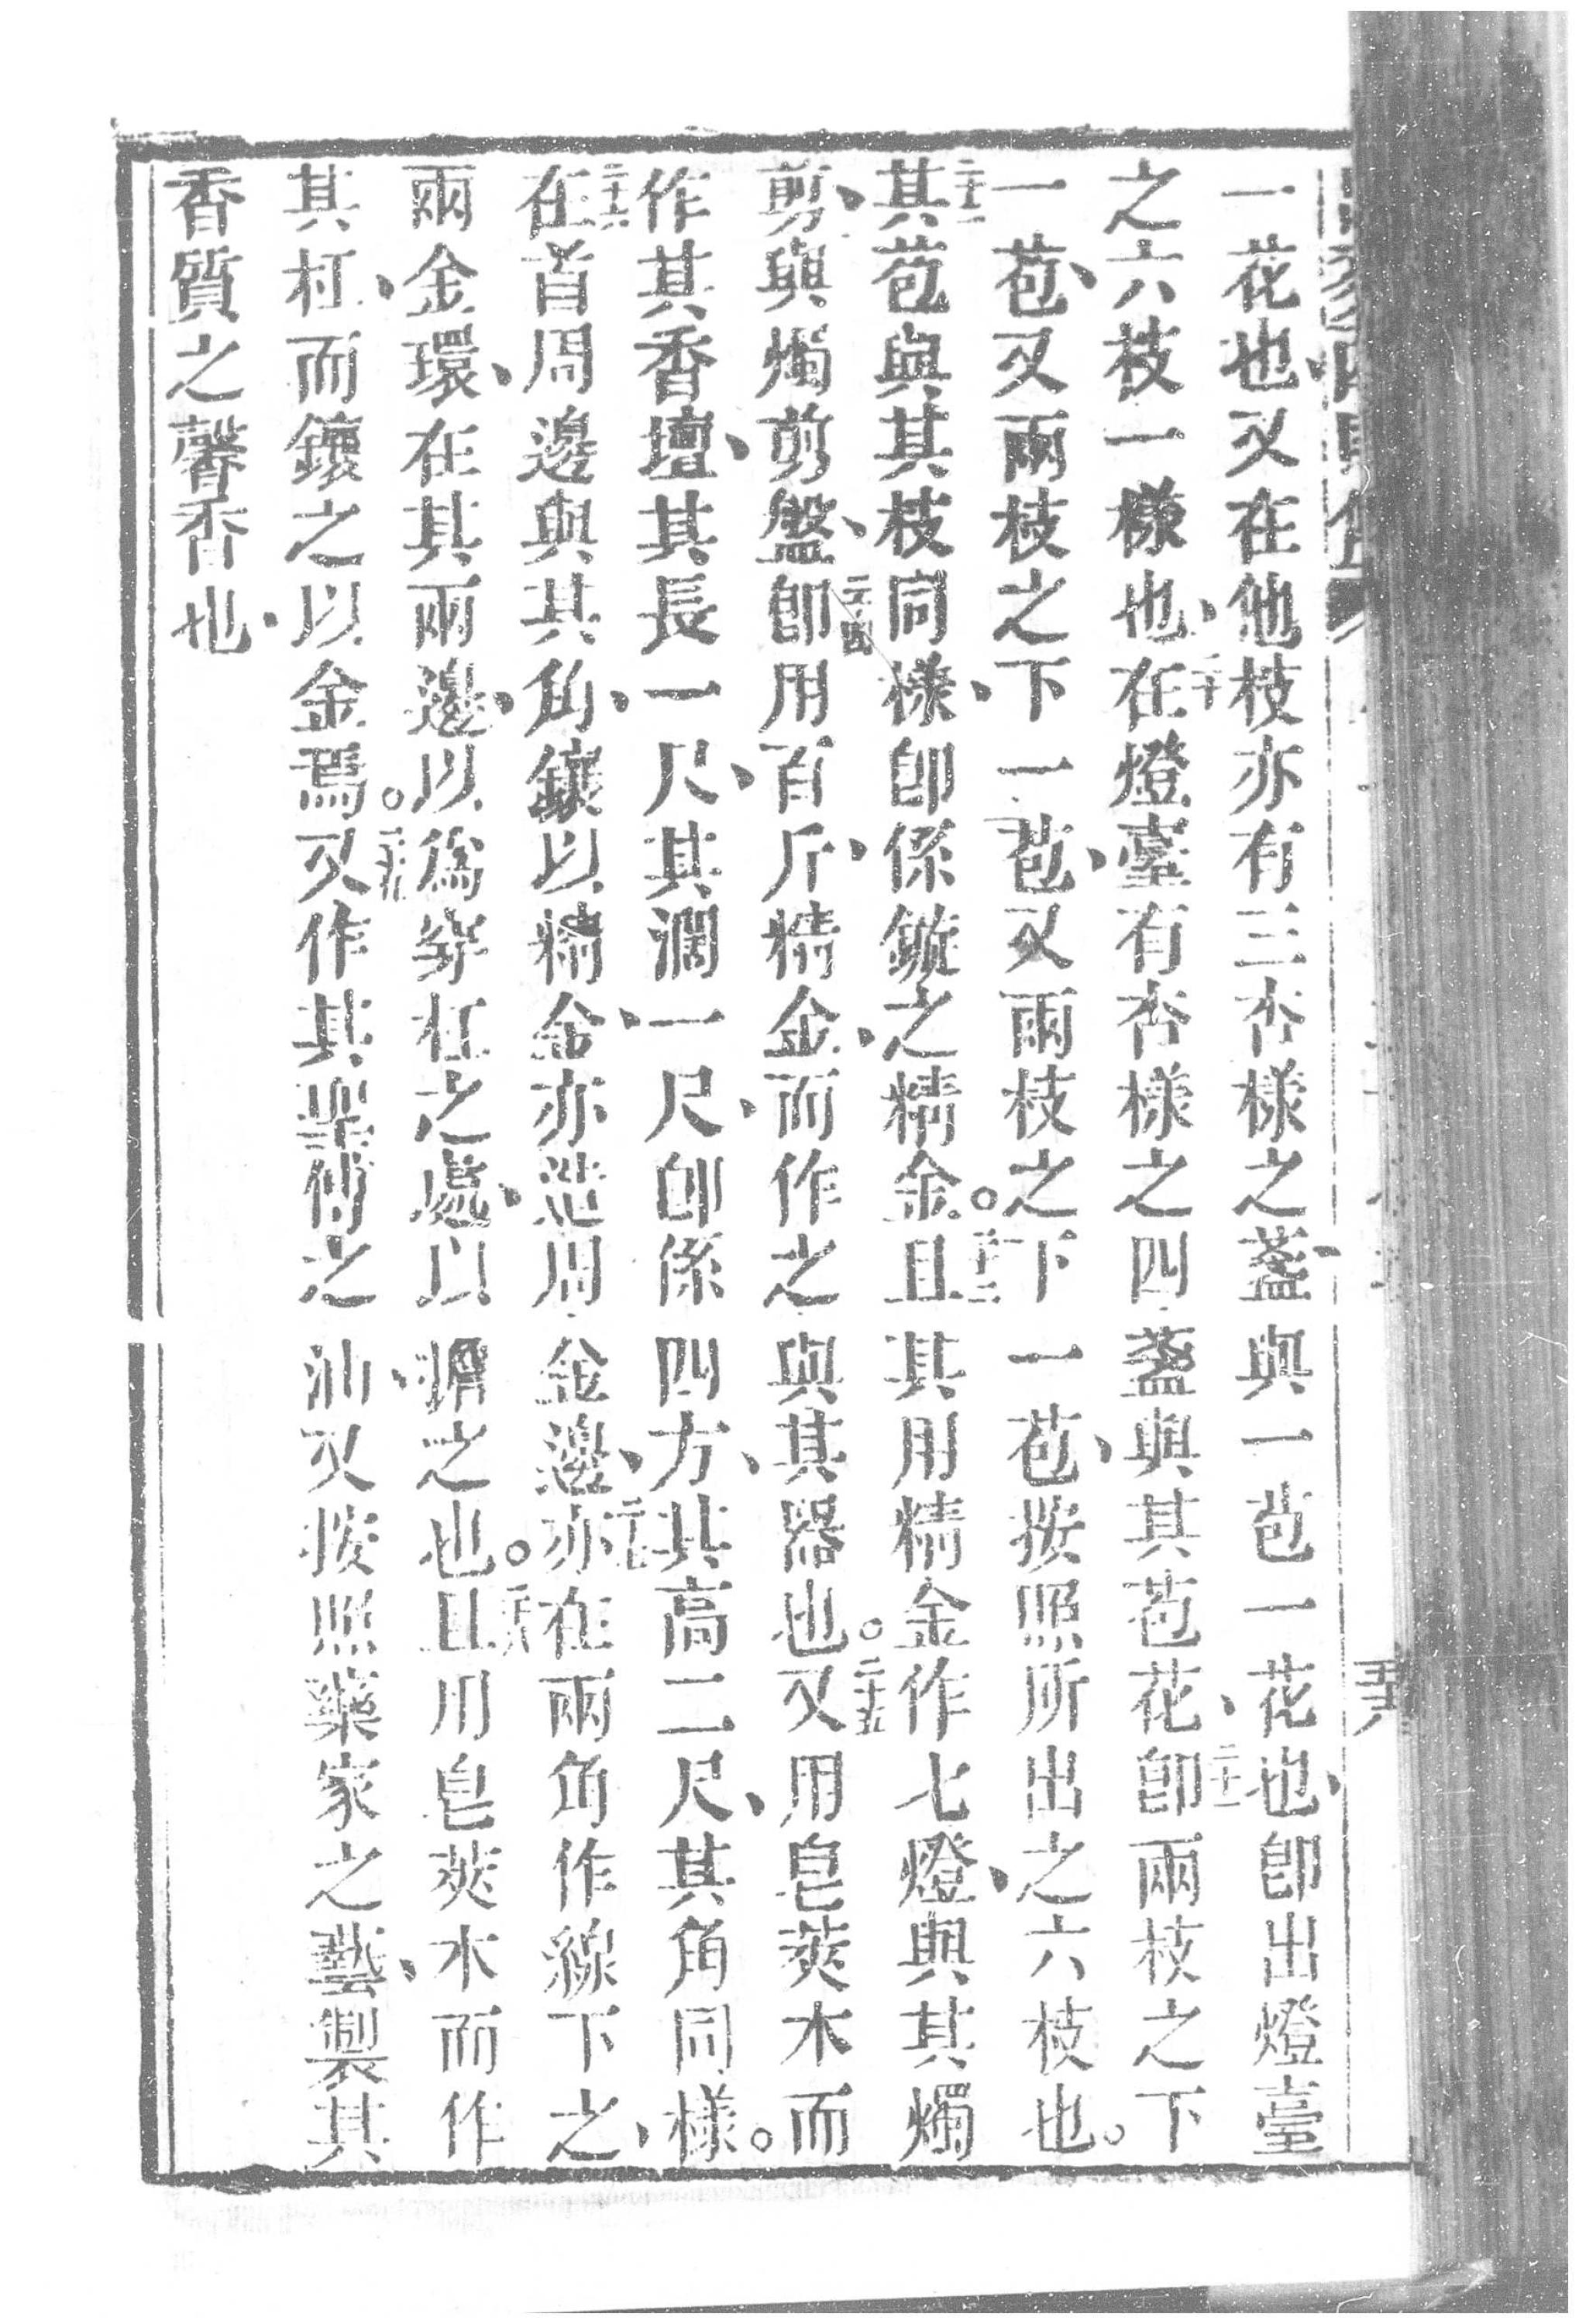 一花也、又在他枝亦有三杏樣之盞、與一苞一花也、即出燈臺
之六枝一樣也、二十在燈臺有杏樣之四盞與其苞花、二十一即兩枝之下
一苞、又兩枝之下一苞、又兩枝之下一苞、按照所出之六枝也。
二十二其苞與其枝同樣、即係鏇之精金。二十三且其用精金作七燈、與其燭
剪、與燭剪盤、二十四即用百斤、精金、而作之與其器也。二十五又用皂莢木而
作其香壇、其長一尺、其濶一尺、即係四方、其高二尺、其角同樣。
二十六在首周邊與其角、鑲以精金、亦造周金邊、二十七亦在兩角作線下之、
兩金環、在其兩邊、以為穿杠之處、以擡之也。二十八且用皂莢木而作
其杠、而鑲之以金焉。二十九又作其聖傅之油、又按照藥家之藝、製其
香質之馨香也、